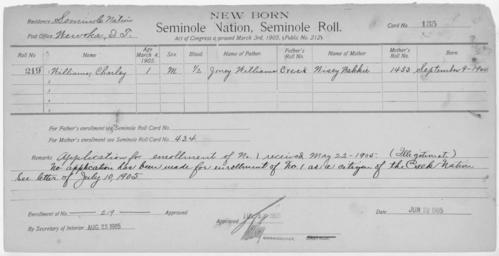 NEW BORN
Residence: Seminole Nation
Seminole Nation, Seminole Roll.
Card No.
Post Office, Wewoka, I.T.
Act of Congress approved March 3rd, 1905, (Public No. 212).
Roll No Name Age March 4, 1905. Sex. Blood. Name of Father. Father's Roll No. Name of Mother Mother's Roll No. Born
Williams, Charley 1 M 1/2 Williams Creek 1453 September
For Father's enrollment see Seminole Roll Card No.
For Mother's enrollment see Seminole Roll Card No. 434
Remarks Application for enrollment of No. 1 received May 22-1905. (Illegitimate)
No application has been made for enrollment of No. 1 as a citizen of the Creek Nation
See letter of July 10, 1905
Enrollment of No. 219 Approved
Approved
Date JUN 1905
By Secretary of Interior AUG 23 1905
COMMISSIONER.